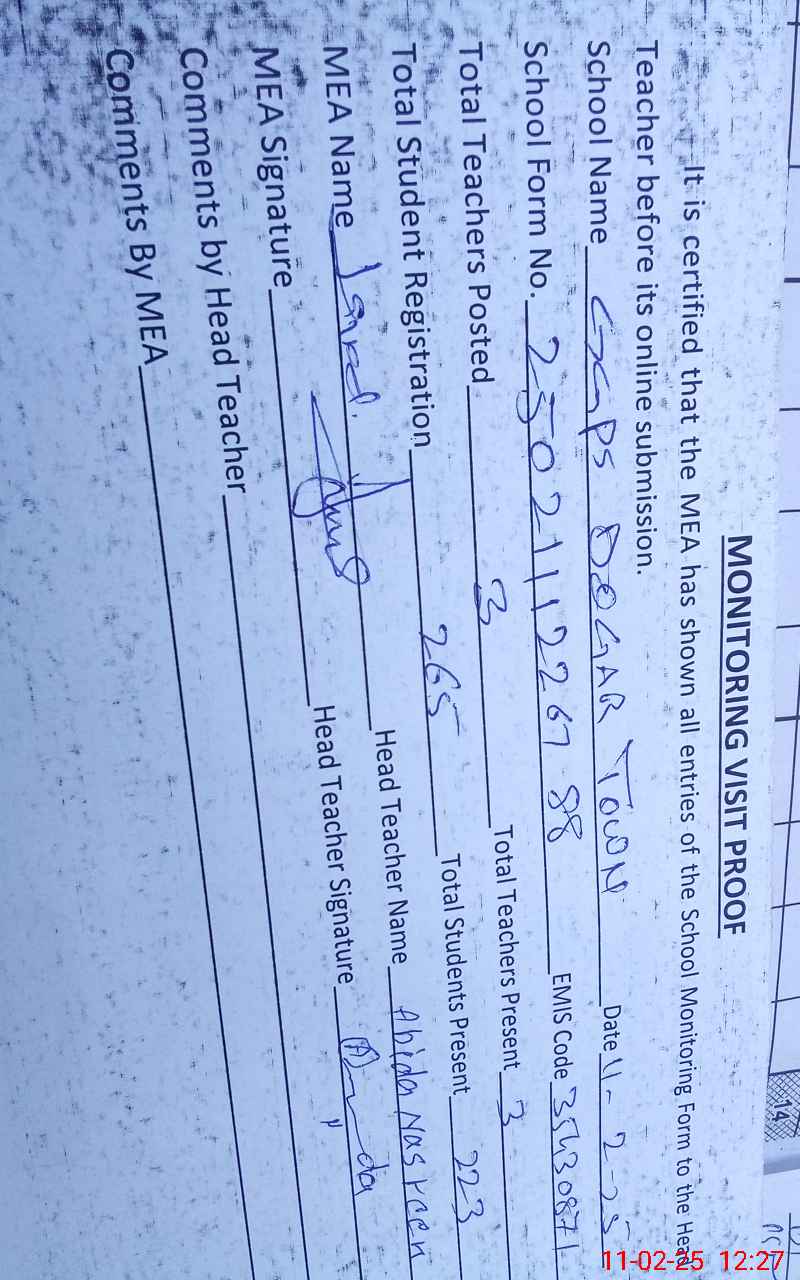 14
MONITORING VISIT PROOF
It is certified that the MEA has shown all entries of the School Monitoring Form to the Head
Teacher before its online submission.
School Name GGPS DOGAR TOWN Date 11-2-25
School Form No. 25021112267 88 EMIS Code 35430871
Total Teachers Posted 3 Total Teachers Present 3
Total Student Registration 265 Total Students Present 223
MEA Name Head Teacher Name Abida Nasreen
MEA Signature Head Teacher Signature
Comments by Head Teacher
Comments By MEA
11-02-25 12:27